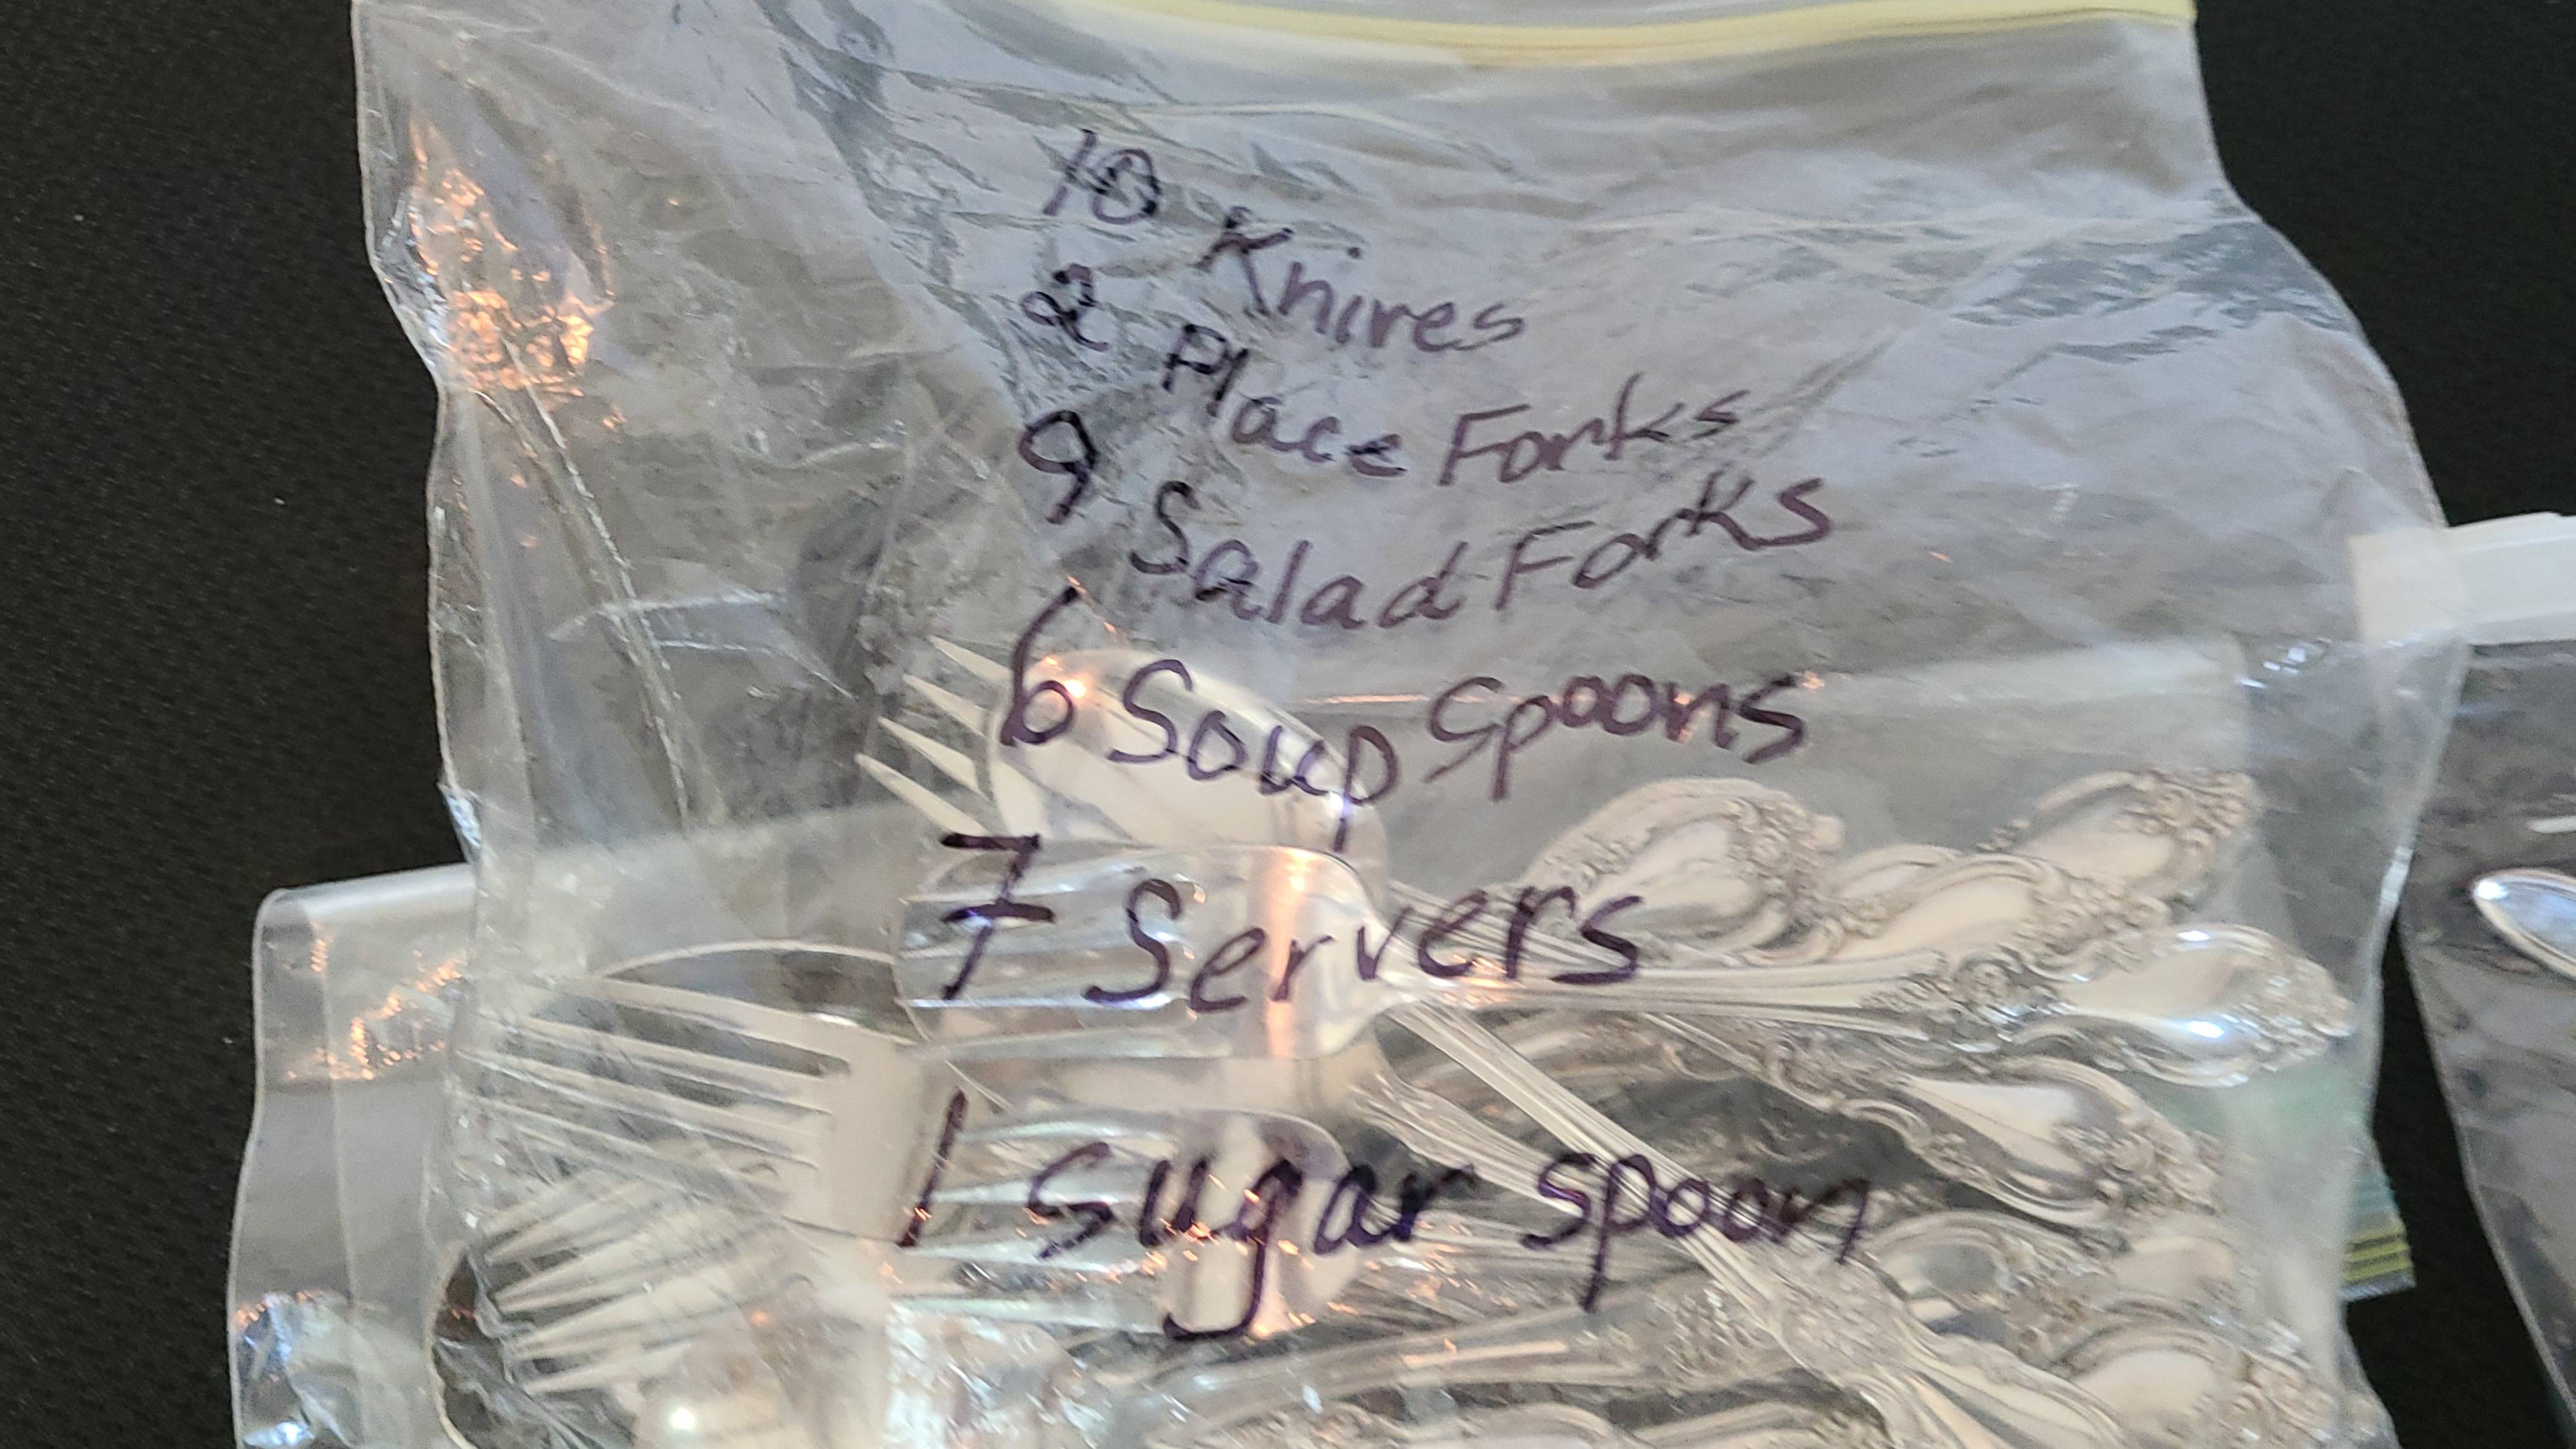 10 Knives
2 Place Forks
9 Salad Forks
6 Soup Spoons
7 Servers
1 Sugar spoon